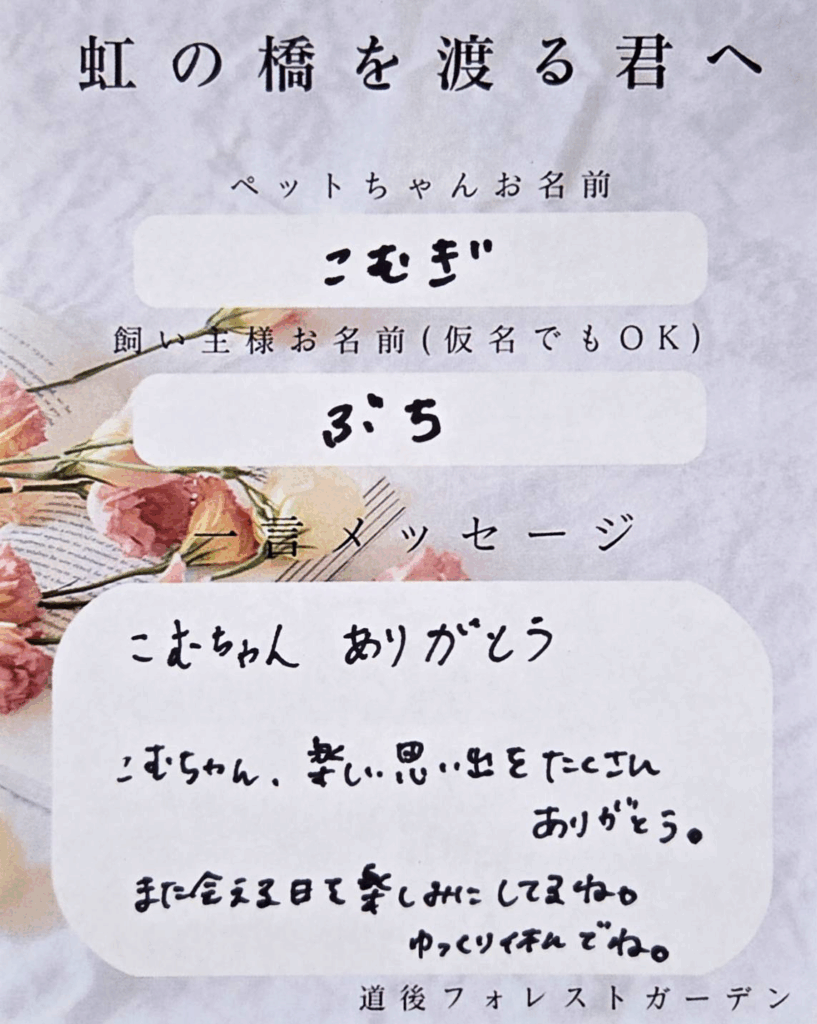 虹の橋を渡る君へ
ペットちゃんお名前
こむぎ
飼い主様お名前(仮名でもOK)
ぷち
一言メッセージ
こむちゃん ありがとう
こむちゃん、楽しい思い出をたくさん
ありがとう。
また会える日を楽しみにしてるね。
ゆっくり休んでね。
道後フォレストガーデン